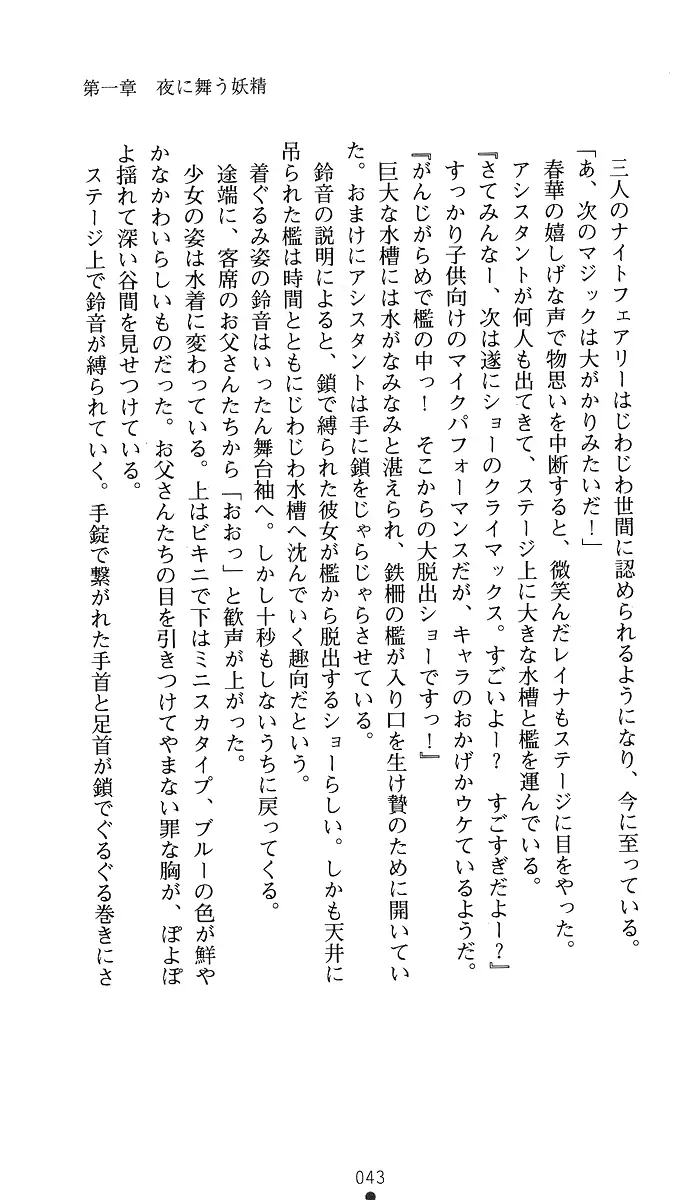 第一章　夜に舞う妖精
三人のナイトフェアリーはじわじわ世間に認められるようになり、今に至っている。
「あ、次のマジックは大がかりみたいだ！」
春華の嬉しげな声で物思いを中断すると、微笑んだレイナもステージに目をやった。
アシスタントが何人も出てきて、ステージ上に大きな水槽と檻を運んでいる。
『さてみんなー、次は遂にショーのクライマックス。すごいよー？　すごすぎだよー？』
すっかり子供向けのマイクパフォーマンスだが、キャラのおかげかウケているようだ。
『がんじがらめで檻の中っ！　そこからの大脱出ショーですっ！』
巨大な水槽には水がなみなみと湛えられ、鉄柵の檻が入り口を生け贄のために開いてい
た。おまけにアシスタントは手に鎖をじゃらじゃらさせている。
鈴音の説明によると、鎖で縛られた彼女が檻から脱出するショーらしい。しかも天井に
吊られた檻は時間とともにじわじわ水槽へ沈んでいく趣向だという。
着ぐるみ姿の鈴音はいったん舞台袖へ。しかし十秒もしないうちに戻ってくる。
途端に、客席のお父さんたちから「おおっ」と歓声が上がった。
少女の姿は水着に変わっている。上はビキニで下はミニスカタイプ、ブルーの色が鮮や
かなかわいらしいものだった。お父さんたちの目を引きつけてやまない罪な胸が、ぽよぽ
よ揺れて深い谷間を見せつけている。
ステージ上で鈴音が縛られていく。手錠で繋がれた手首と足首が鎖でぐるぐる巻きにさ
043